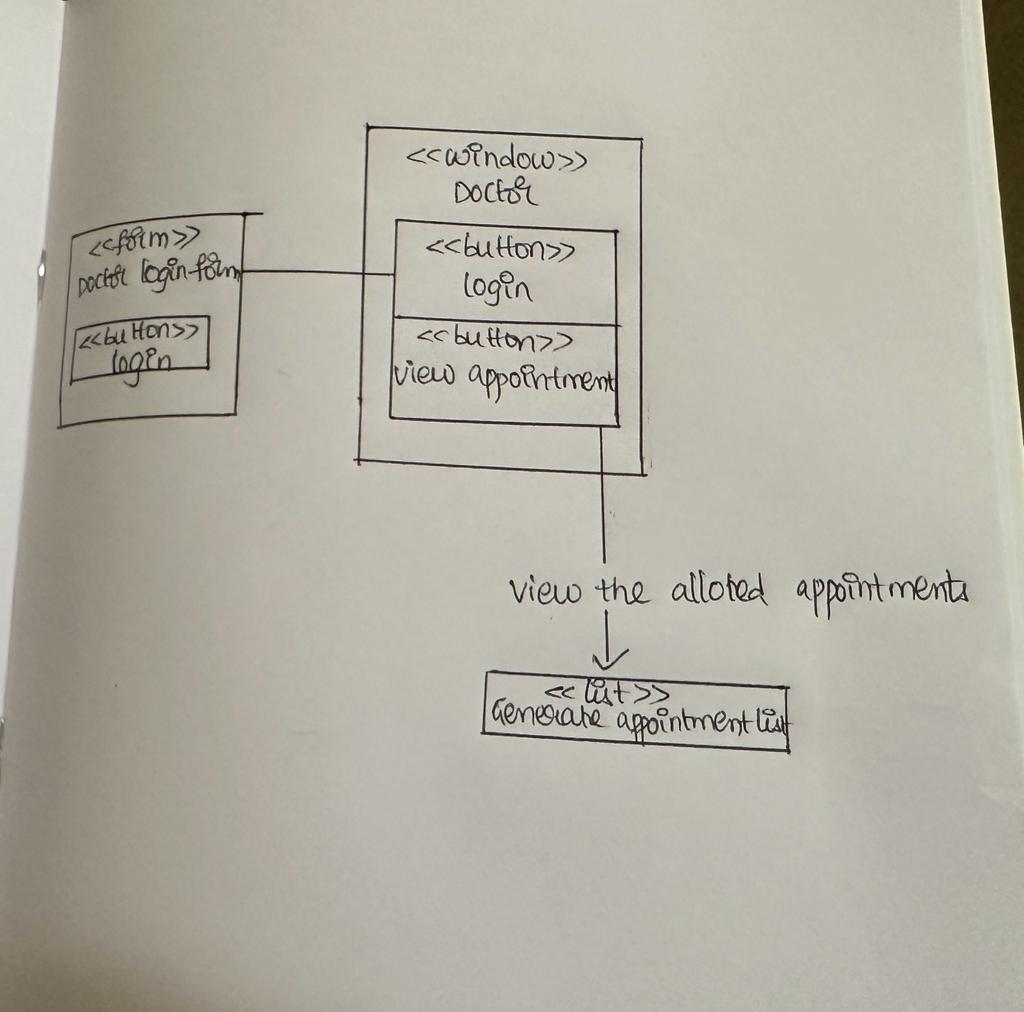 <<window>>
Doctor
<<form>>
Doctor login form
<<button>>
login
<<button>>
login
<<button>>
view appointment
view the alloted appointments
<<list>>
Generate appointment list